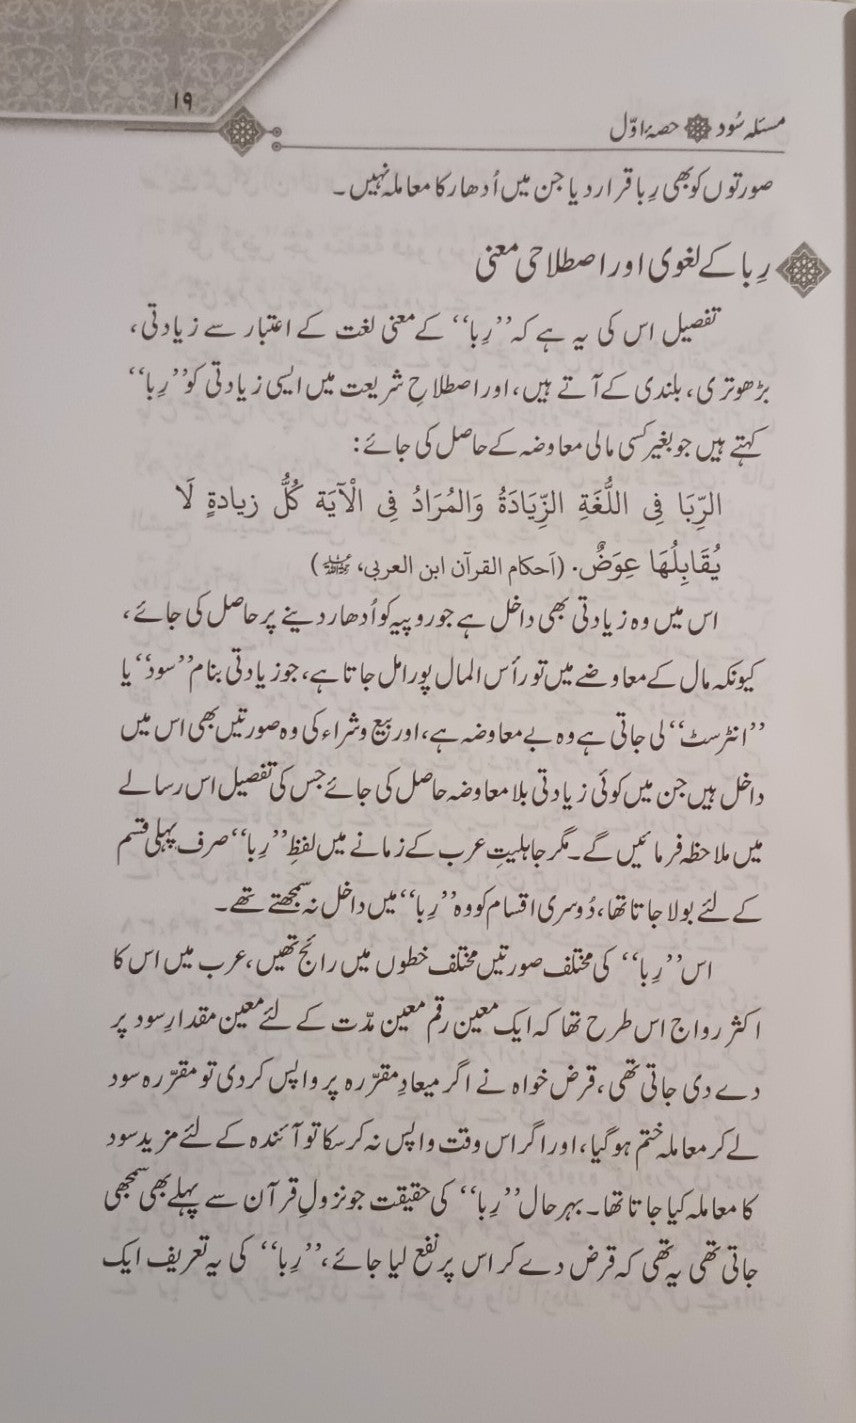 ۱۹
مسئلہ سُود حصہ اوّل
صورتوں کو بھی رِبا قرار دیا جن میں اُدھار کا معاملہ نہیں۔
رِبا کے لغوی اور اصطلاحی معنی
تفصیل اس کی یہ ہے کہ ’’رِبا‘‘ کے معنی لغت کے اعتبار سے زیادتی،
بڑھوتری، بلندی کے آتے ہیں، اور اصطلاحِ شریعت میں ایسی زیادتی کو ’’رِبا‘‘
کہتے ہیں جو بغیر کسی مالی معاوضہ کے حاصل کی جائے:
الرِّبَا فِی اللُّغَةِ الزِّيَادَةُ وَالمُرَادُ فِی الْآيَة كُلُّ زيادةٍ لَا
يُقَابِلُهَا عِوَضٌ. (اَحکام القرآن ابن العربی، ؒ)
اس میں وہ زیادتی بھی داخل ہے جو روپیہ کو اُدھار دینے پر حاصل کی جائے،
کیونکہ مال کے معاوضے میں تو رأس المال پورا مل جاتا ہے، جو زیادتی بنام ’’سود‘‘ یا
’’انٹرسٹ‘‘ لی جاتی ہے وہ بے معاوضہ ہے، اور بیع وشراء کی وہ صورتیں بھی اس میں
داخل ہیں جن میں کوئی زیادتی بلا معاوضہ حاصل کی جائے جس کی تفصیل اس رسالے
میں ملاحظہ فرمائیں گے۔ مگر جاہلیتِ عرب کے زمانے میں لفظِ ’’رِبا‘‘ صرف پہلی قسم
کے لئے بولا جاتا تھا، دُوسری اقسام کو وہ ’’رِبا‘‘ میں داخل نہ سمجھتے تھے۔
اس ’’رِبا‘‘ کی مختلف صورتیں مختلف خطوں میں رائج تھیں، عرب میں اس کا
اکثر رواج اس طرح تھا کہ ایک معین رقم معین مدّت کے لئے معین مقدارِ سود پر
دے دی جاتی تھی، قرض خواہ نے اگر میعادِ مقرّرہ پر واپس کر دی تو مقرّرہ سود
لے کر معاملہ ختم ہو گیا، اور اگر اس وقت واپس نہ کر سکا تو آئندہ کے لئے مزید سود
کا معاملہ کیا جاتا تھا۔ بہر حال ’’رِبا‘‘ کی حقیقت جو نزولِ قرآن سے پہلے بھی سمجھی
جاتی تھی یہ تھی کہ قرض دے کر اس پر نفع لیا جائے، ’’رِبا‘‘ کی یہ تعریف ایک